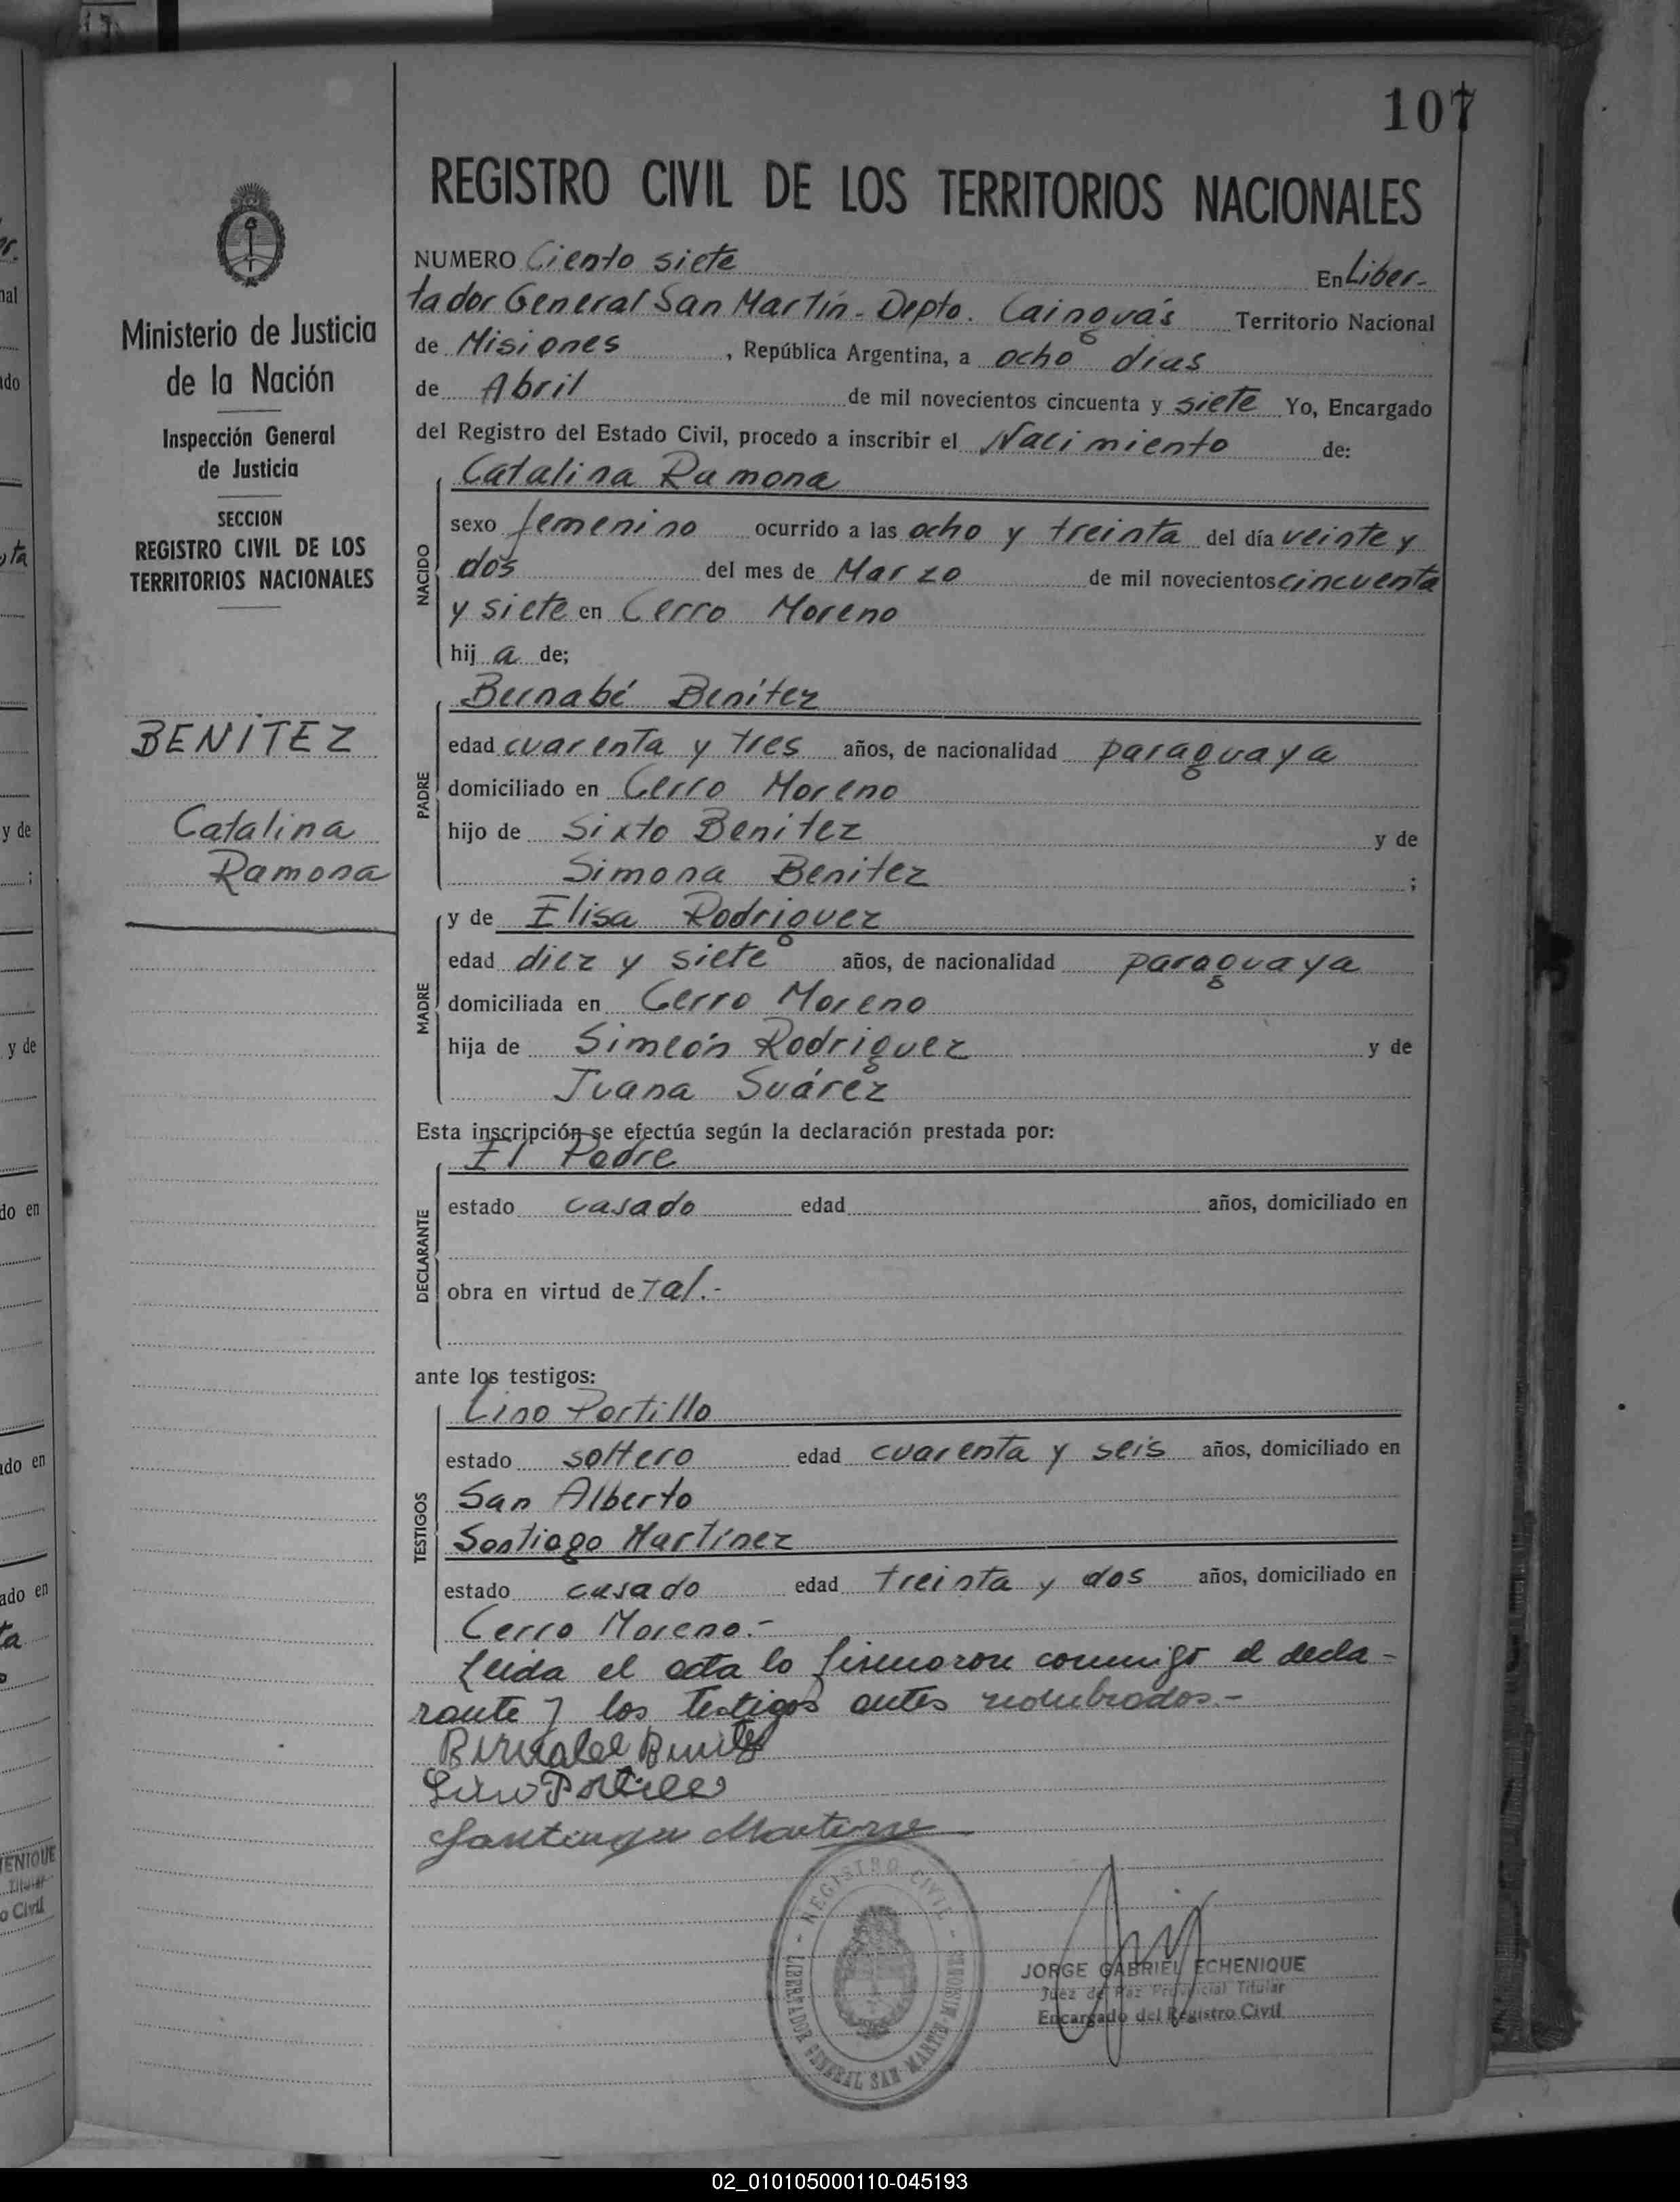 107
REGISTRO CIVIL DE LOS TERRITORIOS NACIONALES
Ministerio de Justicia
de la Nación
Inspección General
de Justicia
SECCION
REGISTRO CIVIL DE LOS
TERRITORIOS NACIONALES
BENÍTEZ
Catalina
Ramona
NUMERO Ciento siete En Liber-
tador General San Martín - Depto. Cainguás Territorio Nacional
de Misiones, República Argentina, a ocho días
de Abril de mil novecientos cincuenta y siete Yo, Encargado
del Registro del Estado Civil, procedo a inscribir el Nacimiento de:
NACIDO
Catalina Ramona
sexo femenino ocurrido a las ocho y treinta del día veinte y
dós del mes de Marzo de mil novecientos cincuenta
y siete en Cerro Moreno
hij a de;
PADRE
Bernabé Benítez
edad cuarenta y tres años, de nacionalidad paraguaya
domiciliado en Cerro Moreno
hijo de Sixto Benítez y de
Simona Benitez ;
MADRE
y de Elisa Rodriguez
edad diez y siete años, de nacionalidad paraguaya
domiciliada en Cerro Moreno
hija de Simeón Rodriguez y de
Juana Suárez
Esta inscripción se efectúa según la declaración prestada por:
DECLARANTE
El Padre
estado casado edad años, domiciliado en
obra en virtud de Tal.-
ante los testigos:
TESTIGOS
Lino Portillo
estado soltero edad cuarenta y seis años, domiciliado en
San Alberto
Santiago Martínez
estado casado edad treinta y dos años, domiciliado en
Cerro Moreno.-
Leida el acta lo firmaron conmigo el decla-
rante y los testigos antes nombrados.-
Bernabe Benitez
Lino Portillo
Santiago Martinez
REGISTRO CIVIL
LIBERTADOR GENERAL SAN MARTIN - MISIONES
JORGE GABRIEL ECHENIQUE
Juez de Paz Provincial Titular
Encargado del Registro Civil
02_010105000110-045193